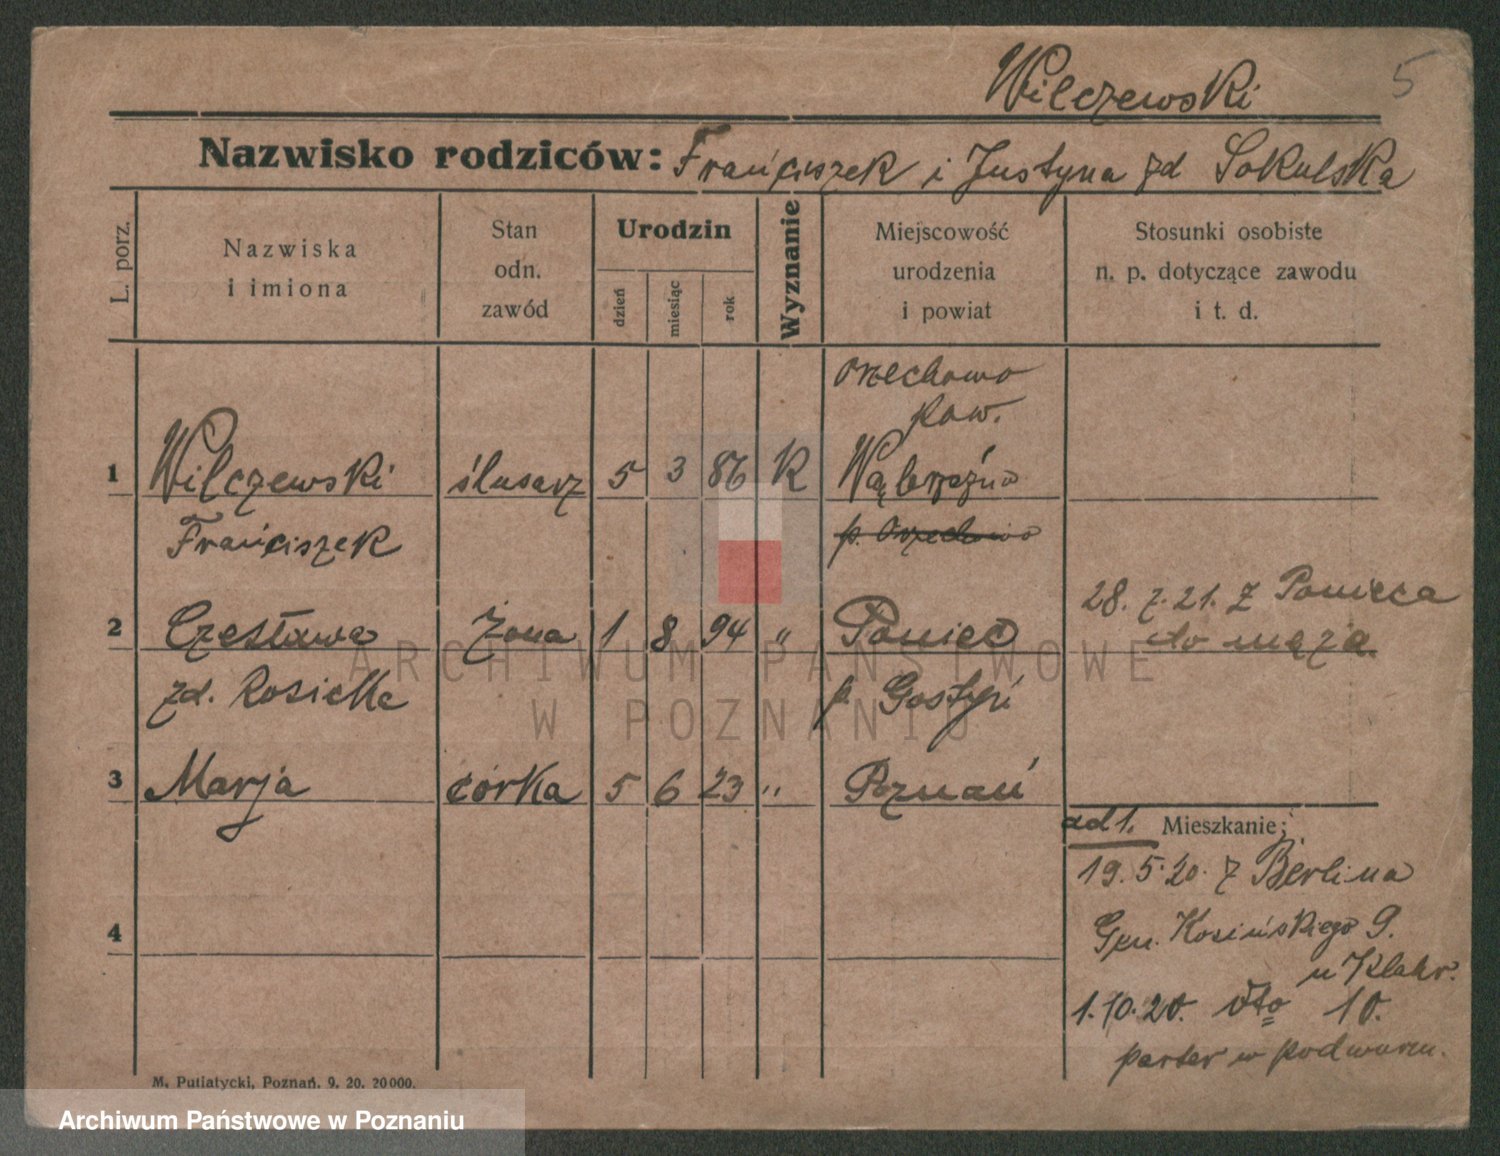 Wilczewski 5
Nazwisko rodziców: Franciszek i Justyna zd Sokulska
L. porz.
Nazwiska
i imiona
Stan
odn.
zawód
Urodzin
dzień
miesiąc
rok
Wyznanie
Miejscowość
urodzenia
i powiat
Stosunki osobiste
n. p. dotyczące zawodu
i t. d.
Orzechowo
pow.
1 Wilczewski ślusarz 5 3 86 K Wąbrzeźno
Franciszek p. Orzechowo
28. 7. 21. z Ponieca
2 Czesława żona 1 8 94 " Poniec do męża.
zd. p. Gostyń
3 Marja córka 5 6 23 " Poznań
ad 1. Mieszkanie:
19. 5. 20. z Berlina
4 Gen. Kosińskiego 9.
u Klahr.
1. 10. 20. dto 10.
parter w podwórzu.
M. Putiatycki, Poznań. 9. 20. 20000.
ARCHIWUM PAŃSTWOWE
W POZNANIU
Archiwum Państwowe w Poznaniu